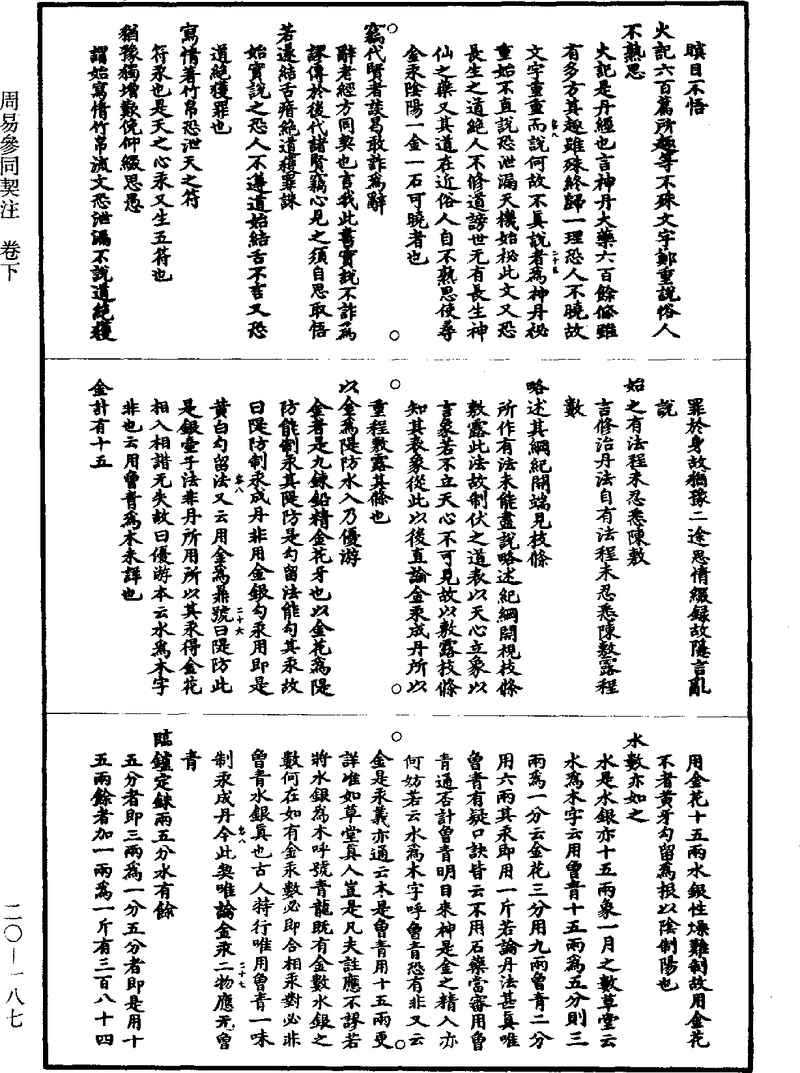 周易參同契注　卷下
二〇—一八七
瞑目不悟
火記六百篇所趣等不殊文字鄭重說俗人
不熟思
火記是丹經也言神丹大藥六百餘條雖
有多方其趣雖殊終歸一理恐人不曉故
文字重重而說何故不真說者為神丹秘
重始不直說恐泄漏天機始秘此文又恐
長生之道絕人不修道謗世无有長生神
仙之藥又其道在近俗人自不熟思使尋
金汞陰陽一金一石可曉者也
竊代賢者談曷敢詐為辭
辭老經方同契也言我此書實說不詐為
謬傳於後代諸賢竊心見之須自思取悟
若遂結舌瘖絕道獲罪誅
始實說之恐人不遵道始結舌不言又恐
道絕獲罪也
寫情著竹帛恐泄天之符
符汞也是天之心汞又生五符也
猶豫獨增歎俛仰綴思愚
謂始寫情竹帛流文恐泄漏不說道絕獲
罪於身故猶豫二途思情綴録故隱言亂
說
始之有法程未忍悉陳敷
言修治丹法自有法程未忍悉陳敷露程
數
略述其綱紀開端見枝條
所作有法未能盡說略述紀綱開視枝條
敷露此法故制伏之道表以天心立象以
言象若不立天心不可見故以敷露枝條
知其表象從此以後直論金汞成丹所以
重程敷露其條也
以金為隄防水入乃優游
金者是九鍊鉛精金花牙也以金花為隄
防能制汞其隄防是勾留法能勾其汞故
曰隄防制汞成丹非用金銀勾汞用即是
黃白勾留法又云用金為鼎號曰隄防此
是銀壺子法非丹所用所以其汞得金花
相入相諧无失故曰優游本云水為木字
非也云用曾青為木未詳也
金計有十五
用金花十五兩水銀性燥難制故用金花
不者黃牙勾留為根以陰制陽也
水數亦如之
水是水銀亦十五兩象一月之數草堂云
水為木字云用曾青十五兩為五分則三
兩為一分云金花三分用九兩曾青二分
用六兩其汞即用一斤若論丹法甚真唯
曾青有疑口訣皆云不用石藥當審用曾
青通否計曾青明目來神是金之精入亦
何妨若云水為木字呼曾青恐有非又云
金是汞義亦通云木是曾青用十五兩更
詳唯如草堂真人豈是凡夫註應不謬若
將水銀為木呼號青龍既有金數水銀之
數何在如有金汞數必即合相汞對必非
曾青水銀真也古人特行唯用曾青一味
制汞成丹今此契唯論金汞二物應无曾
青
臨鑪定銖兩五分水有餘
五分者即三兩為一分五分者即是用十
五兩餘者加一兩為一斤有三百八十四